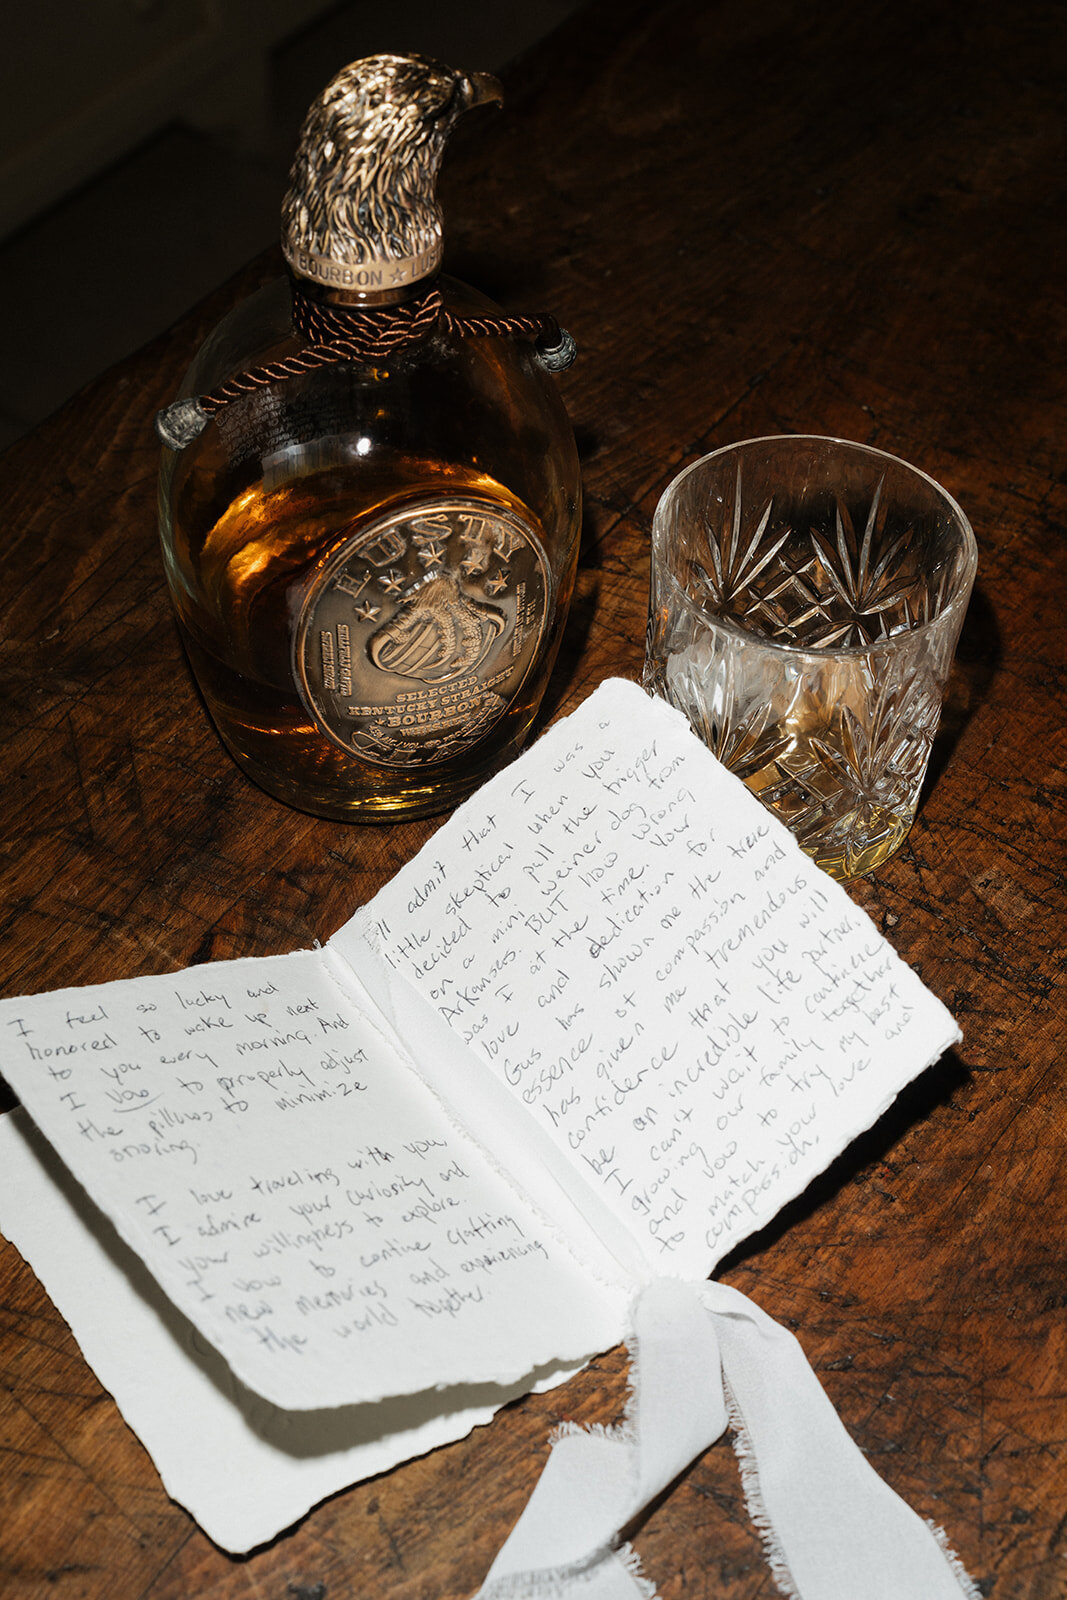 BOURBON ★ LUS
LUSTY
SELECTED
KENTUCKY STRAIGHT
BOURBON
I feel so lucky and
honored to wake up next
to you every morning. And
I vow to properly adjust
the pillows to minimize
snoring.
I love traveling with you
I admire your curiosity and
your willingness to explore.
I vow to contine crafting
new memories and experiencing
the world together.
I'll admit that I was a
little skeptical when you
decided to pull the trigger
on a mini weiner dog from
Arkansas. BUT how wrong
was I at the time. Your
love and dedication for
Gus has shown me the true
essence of compassion and
has given me tremendous
confidence that you will
be an incredible life partner.
I can't wait to continue
growing our family together
and vow to try my best
to match your love and
compassion.